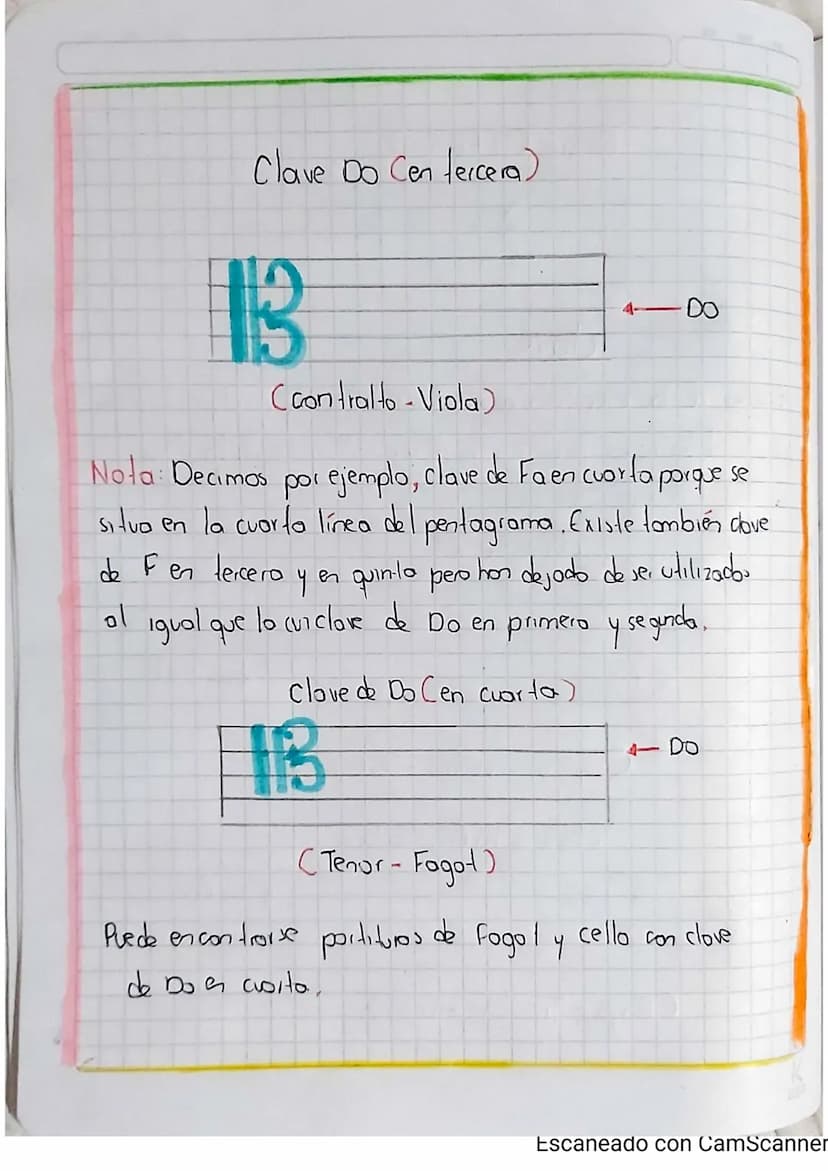 Clave Do (en tercera)
Do
(contralto - Viola)
Nota: Decimos por ejemplo, clave de Fa en cuarta porque se
situa en la cuarta línea del pentagrama. Existe también clave
de F en tercera y en quinta pero han dejado de ser utilizados
al igual que la clave de Do en primera y segunda.
Clave de Do (en cuarta)
Do
(Tenor - Fagot)
Puede encontrarse partituras de Fagot y cello con clave
de Do en cuarta.
Escaneado con CamScanner